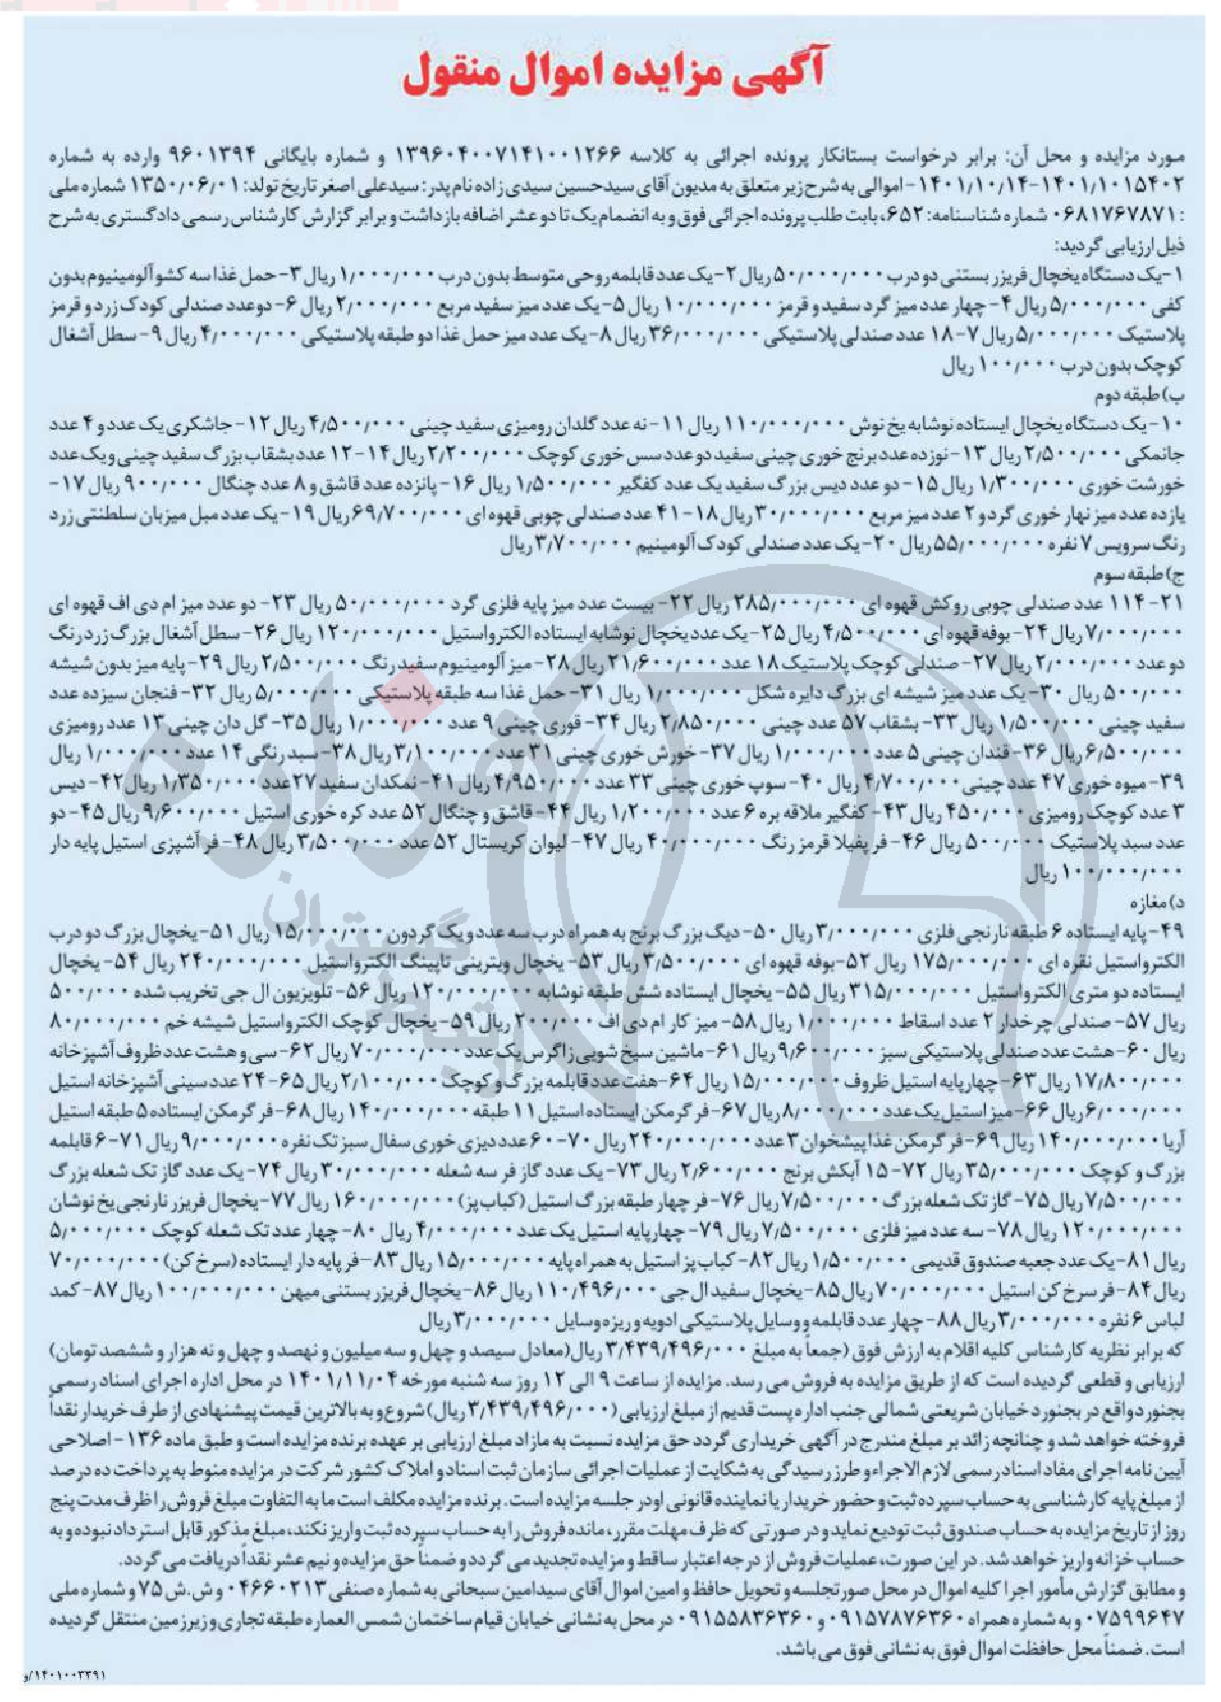 آگهی مزایده اموال منقول
مورد مزایده و محل آن: برابر درخواست بستانکار پرونده اجرائی به کلاسه ۱۳۹۶۰۴۰۰۷۱۴۱۰۰۱۲۶۶ و شماره بایگانی ۹۶۰۱۳۹۴ وارده به شماره
۱۴۰۱/۱۰/۱۴-۱۴۰۱/۱۰۱۵۴۰۲- اموالی به شرح زیر متعلق به مدیون آقای سیدحسین سیدی زاده نام پدر: سیدعلی اصغر تاریخ تولد: ۱۳۵۰/۰۶/۰۱ شماره ملی
: ۰۶۸۱۷۶۷۸۷۱ شماره شناسنامه: ۶۵۲، بابت طلب پرونده اجرائی فوق و به انضمام یک تا دو عشر اضافه بازداشت و برابر گزارش کارشناس رسمی دادگستری به شرح
ذیل ارزیابی گردید:
۱-یک دستگاه یخچال فریزر بستنی دو درب ۵۰/۰۰۰/۰۰۰ ریال ۲-یک عدد قابلمه روحی متوسط بدون درب ۱/۰۰۰/۰۰۰ ریال ۳- حمل غذا سه کشو آلومینیوم بدون
کفی ۵/۰۰۰/۰۰۰ ریال ۴- چهار عدد میز گرد سفید و قرمز ۱۰/۰۰۰/۰۰۰ ریال ۵- یک عدد میز سفید مربع ۲/۰۰۰/۰۰۰ ریال ۶- دو عدد صندلی کودک زرد و قرمز
پلاستیک ۵/۰۰۰/۰۰۰ ریال ۷- ۱۸ عدد صندلی پلاستیکی ۳۶/۰۰۰/۰۰۰ ریال ۸- یک عدد میز حمل غذا دو طبقه پلاستیکی ۴/۰۰۰/۰۰۰ ریال ۹- سطل آشغال
کوچک بدون درب ۱۰۰/۰۰۰ ریال
ب) طبقه دوم
۱۰- یک دستگاه یخچال ایستاده نوشابه یخ نوش ۱۱۰/۰۰۰/۰۰۰ ریال ۱۱- نه عدد گلدان رومیزی سفید چینی ۴/۵۰۰/۰۰۰ ریال ۱۲- جاشکری یک عدد و ۴ عدد
جانمکی ۲/۵۰۰/۰۰۰ ریال ۱۳- نوزده عدد برنج خوری چینی سفید دو عدد سس خوری کوچک ۲/۲۰۰/۰۰۰ ریال ۱۴- ۱۲ عدد بشقاب بزرگ سفید چینی و یک عدد
خورشت خوری ۱/۳۰۰/۰۰۰ ریال ۱۵- دو عدد دیس بزرگ سفید یک عدد کفگیر ۱/۵۰۰/۰۰۰ ریال ۱۶- پانزده عدد قاشق و ۸ عدد چنگال ۹۰۰/۰۰۰ ریال ۱۷-
یازده عدد میز نهار خوری گرد و ۲ عدد میز مربع ۳۰/۰۰۰/۰۰۰ ریال ۱۸- ۴۱ عدد صندلی چوبی قهوه ای ۶۹/۷۰۰/۰۰۰ ریال ۱۹- یک عدد مبل میزبان سلطنتی زرد
رنگ سرویس ۷ نفره ۵۵/۰۰۰/۰۰۰ ریال ۲۰- یک عدد صندلی کودک آلومینیم ۳/۷۰۰/۰۰۰ ریال
ج) طبقه سوم
۲۱- ۱۱۴ عدد صندلی چوبی روکش قهوه ای ۲۸۵/۰۰۰/۰۰۰ ریال ۲۲- بیست عدد میز پایه فلزی گرد ۵۰/۰۰۰/۰۰۰ ریال ۲۳- دو عدد میز ام دی اف قهوه ای
۷/۰۰۰/۰۰۰ ریال ۲۴- بوفه قهوه ای ۴/۵۰۰/۰۰۰ ریال ۲۵- یک عدد یخچال نوشابه ایستاده الکترواستیل ۱۲۰/۰۰۰/۰۰۰ ریال ۲۶- سطل آشغال بزرگ زرد رنگ
دو عدد ۲/۰۰۰/۰۰۰ ریال ۲۷- صندلی کوچک پلاستیک ۱۸ عدد ۲۱/۶۰۰/۰۰۰ ریال ۲۸- میز آلومینیوم سفید رنگ ۲/۵۰۰/۰۰۰ ریال ۲۹- پایه میز بدون شیشه
۵۰۰/۰۰۰ ریال ۳۰- یک عدد میز شیشه ای بزرگ دایره شکل ۱/۰۰۰/۰۰۰ ریال ۳۱- حمل غذا سه طبقه پلاستیکی ۵/۰۰۰/۰۰۰ ریال ۳۲- فنجان سیزده عدد
سفید چینی ۱/۵۰۰/۰۰۰ ریال ۳۳- بشقاب ۵۷ عدد چینی ۲/۸۵۰/۰۰۰ ریال ۳۴- قوری چینی ۹ عدد ۱/۰۰۰/۰۰۰ ریال ۳۵- گل دان چینی ۱۳ عدد رومیزی
۶/۵۰۰/۰۰۰ ریال ۳۶- قندان چینی ۵ عدد ۱/۰۰۰/۰۰۰ ریال ۳۷- خورش خوری چینی ۳۱ عدد ۳/۱۰۰/۰۰۰ ریال ۳۸- سبد رنگی ۱۴ عدد ۱/۰۰۰/۰۰۰ ریال
۳۹- میوه خوری ۴۷ عدد چینی ۴/۷۰۰/۰۰۰ ریال ۴۰- سوپ خوری چینی ۳۳ عدد ۴/۹۵۰/۰۰۰ ریال ۴۱- نمکدان سفید ۲۷ عدد ۱/۳۵۰/۰۰۰ ریال ۴۲- دیس
۳ عدد کوچک رومیزی ۴۵۰/۰۰۰ ریال ۴۳- کفگیر ملاقه بره ۶ عدد ۱/۲۰۰/۰۰۰ ریال ۴۴- قاشق و چنگال ۵۲ عدد کره خوری استیل ۹/۶۰۰/۰۰۰ ریال ۴۵- دو
عدد سبد پلاستیک ۵۰۰/۰۰۰ ریال ۴۶- فر یفیلا قرمز رنگ ۴۰/۰۰۰/۰۰۰ ریال ۴۷- لیوان کریستال ۵۲ عدد ۳/۵۰۰/۰۰۰ ریال ۴۸- فر آشپزی استیل پایه دار
۱۰۰/۰۰۰/۰۰۰ ریال
د) مغازه
۴۹- پایه ایستاده ۶ طبقه نارنجی فلزی ۳/۰۰۰/۰۰۰ ریال ۵۰- دیگ بزرگ برنج به همراه درب سه عدد و یک گردون ۱۵/۰۰۰/۰۰۰ ریال ۵۱- یخچال بزرگ دو درب
الکترواستیل نقره ای ۱۷۵/۰۰۰/۰۰۰ ریال ۵۲- بوفه قهوه ای ۳/۵۰۰/۰۰۰ ریال ۵۳- یخچال ویترینی تاپینگ الکترواستیل ۲۴۰/۰۰۰/۰۰۰ ریال ۵۴- یخچال
ایستاده دو متری الکترواستیل ۳۱۵/۰۰۰/۰۰۰ ریال ۵۵- یخچال ایستاده شش طبقه نوشابه ۱۲۰/۰۰۰/۰۰۰ ریال ۵۶- تلویزیون ال جی تخریب شده ۵۰۰/۰۰۰
ریال ۵۷- صندلی چرخدار ۲ عدد اسقاط ۱/۰۰۰/۰۰۰ ریال ۵۸- میز کار ام دی اف ۲۰۰/۰۰۰ ریال ۵۹- یخچال کوچک الکترواستیل شیشه خم ۸۰/۰۰۰/۰۰۰
ریال ۶۰- هشت عدد صندلی پلاستیکی سبز ۹/۶۰۰/۰۰۰ ریال ۶۱- ماشین سیخ شویی زاگرس یک عدد ۷۰/۰۰۰/۰۰۰ ریال ۶۲- سی و هشت عدد ظروف آشپزخانه
۱۷/۸۰۰/۰۰۰ ریال ۶۳- چهارپایه استیل ظروف ۱۵/۰۰۰/۰۰۰ ریال ۶۴- هفت عدد قابلمه بزرگ و کوچک ۲/۱۰۰/۰۰۰ ریال ۶۵- ۲۴ عدد سینی آشپزخانه استیل
۶/۰۰۰/۰۰۰ ریال ۶۶- میز استیل یک عدد ۸/۰۰۰/۰۰۰ ریال ۶۷- فر گرمکن ایستاده استیل ۱۱ طبقه ۱۴۰/۰۰۰/۰۰۰ ریال ۶۸- فر گرمکن ایستاده ۵ طبقه استیل
آریا ۱۴۰/۰۰۰/۰۰۰ ریال ۶۹- فر گرمکن غذا پیشخوان ۳ عدد ۲۴۰/۰۰۰/۰۰۰ ریال ۷۰- ۶۰ عدد دیزی خوری سفال سبز تک نفره ۹/۰۰۰/۰۰۰ ریال ۷۱- ۶ قابلمه
بزرگ و کوچک ۳۵/۰۰۰/۰۰۰ ریال ۷۲- ۱۵ آبکش برنج ۲/۶۰۰/۰۰۰ ریال ۷۳- یک عدد گاز فر سه شعله ۳۰/۰۰۰/۰۰۰ ریال ۷۴- یک عدد گاز تک شعله بزرگ
۷/۵۰۰/۰۰۰ ریال ۷۵- گاز تک شعله بزرگ ۷/۵۰۰/۰۰۰ ریال ۷۶- فر چهار طبقه بزرگ استیل (کباب پز) ۱۶۰/۰۰۰/۰۰۰ ریال ۷۷- یخچال فریزر نارنجی یخ نوشان
۱۲۰/۰۰۰/۰۰۰ ریال ۷۸- سه عدد میز فلزی ۷/۵۰۰/۰۰۰ ریال ۷۹- چهارپایه استیل یک عدد ۴/۰۰۰/۰۰۰ ریال ۸۰- چهار عدد تک شعله کوچک ۵/۰۰۰/۰۰۰
ریال ۸۱- یک عدد جعبه صندوق قدیمی ۱/۵۰۰/۰۰۰ ریال ۸۲- کباب پز استیل به همراه پایه ۱۵/۰۰۰/۰۰۰ ریال ۸۳- فر پایه دار ایستاده (سرخ کن) ۷۰/۰۰۰/۰۰۰
ریال ۸۴- فر سرخ کن استیل ۷۰/۰۰۰/۰۰۰ ریال ۸۵- یخچال سفید ال جی ۱۱۰/۴۹۶/۰۰۰ ریال ۸۶- یخچال فریزر بستنی میهن ۱۰۰/۰۰۰/۰۰۰ ریال ۸۷- کمد
لباس ۶ نفره ۳/۰۰۰/۰۰۰ ریال ۸۸- چهار عدد قابلمه و وسایل پلاستیکی ادویه و ریزه وسایل ۳/۰۰۰/۰۰۰ ریال
که برابر نظریه کارشناس کلیه اقلام به ارزش فوق (جمعاً به مبلغ ۳/۴۳۹/۴۹۶/۰۰۰ ریال (معادل سیصد و چهل و سه میلیون و نهصد و چهل و نه هزار و ششصد تومان)
ارزیابی و قطعی گردیده است که از طریق مزایده به فروش می رسد. مزایده از ساعت ۹ الی ۱۲ روز سه شنبه مورخه ۱۴۰۱/۱۱/۰۴ در محل اداره اجرای اسناد رسمی
بجنورد واقع در بجنورد خیابان شریعتی شمالی جنب اداره پست قدیم از مبلغ ارزیابی (۳/۴۳۹/۴۹۶/۰۰۰ ریال) شروع و به بالاترین قیمت پیشنهادی از طرف خریدار نقداً
فروخته خواهد شد و چنانچه زائد بر مبلغ مندرج در آگهی خریداری گردد حق مزایده نسبت به مازاد مبلغ ارزیابی بر عهده برنده مزایده است و طبق ماده ۱۳۶- اصلاحی
آیین نامه اجرای مفاد اسناد رسمی لازم الاجراء و طرز رسیدگی به شکایت از عملیات اجرائی سازمان ثبت اسناد و املاک کشور شرکت در مزایده منوط به پرداخت ده درصد
از مبلغ پایه کارشناسی به حساب سپرده ثبت و حضور خریدار یا نماینده قانونی او در جلسه مزایده است. برنده مزایده مکلف است مابه التفاوت مبلغ فروش را ظرف مدت پنج
روز از تاریخ مزایده به حساب صندوق ثبت تودیع نماید و در صورتی که ظرف مهلت مقرر، مانده فروش را به حساب سپرده ثبت واریز نکند، مبلغ مذکور قابل استرداد نبوده و به
حساب خزانه واریز خواهد شد. در این صورت، عملیات فروش از درجه اعتبار ساقط و مزایده تجدید می گردد و ضمناً حق مزایده و نیم عشر نقداً دریافت می گردد.
و مطابق گزارش مأمور اجرا کلیه اموال در محل صورتجلسه و تحویل حافظ و امین اموال آقای سیدامین سبحانی به شماره صنفی ۰۴۶۶۰۲۱۳ و ش.ش ۷۵ و شماره ملی
۰۷۵۹۹۶۴۷ و به شماره همراه ۰۹۱۵۷۸۷۶۳۶۰ و ۰۹۱۵۵۸۳۶۳۶۰ در محل به نشانی خیابان قیام ساختمان شمس العماره طبقه تجاری و زیرزمین منتقل گردیده
است. ضمناً محل حافظت اموال فوق به نشانی فوق می باشد.
۱۴۰۱۰۰۳۲۹۱/و